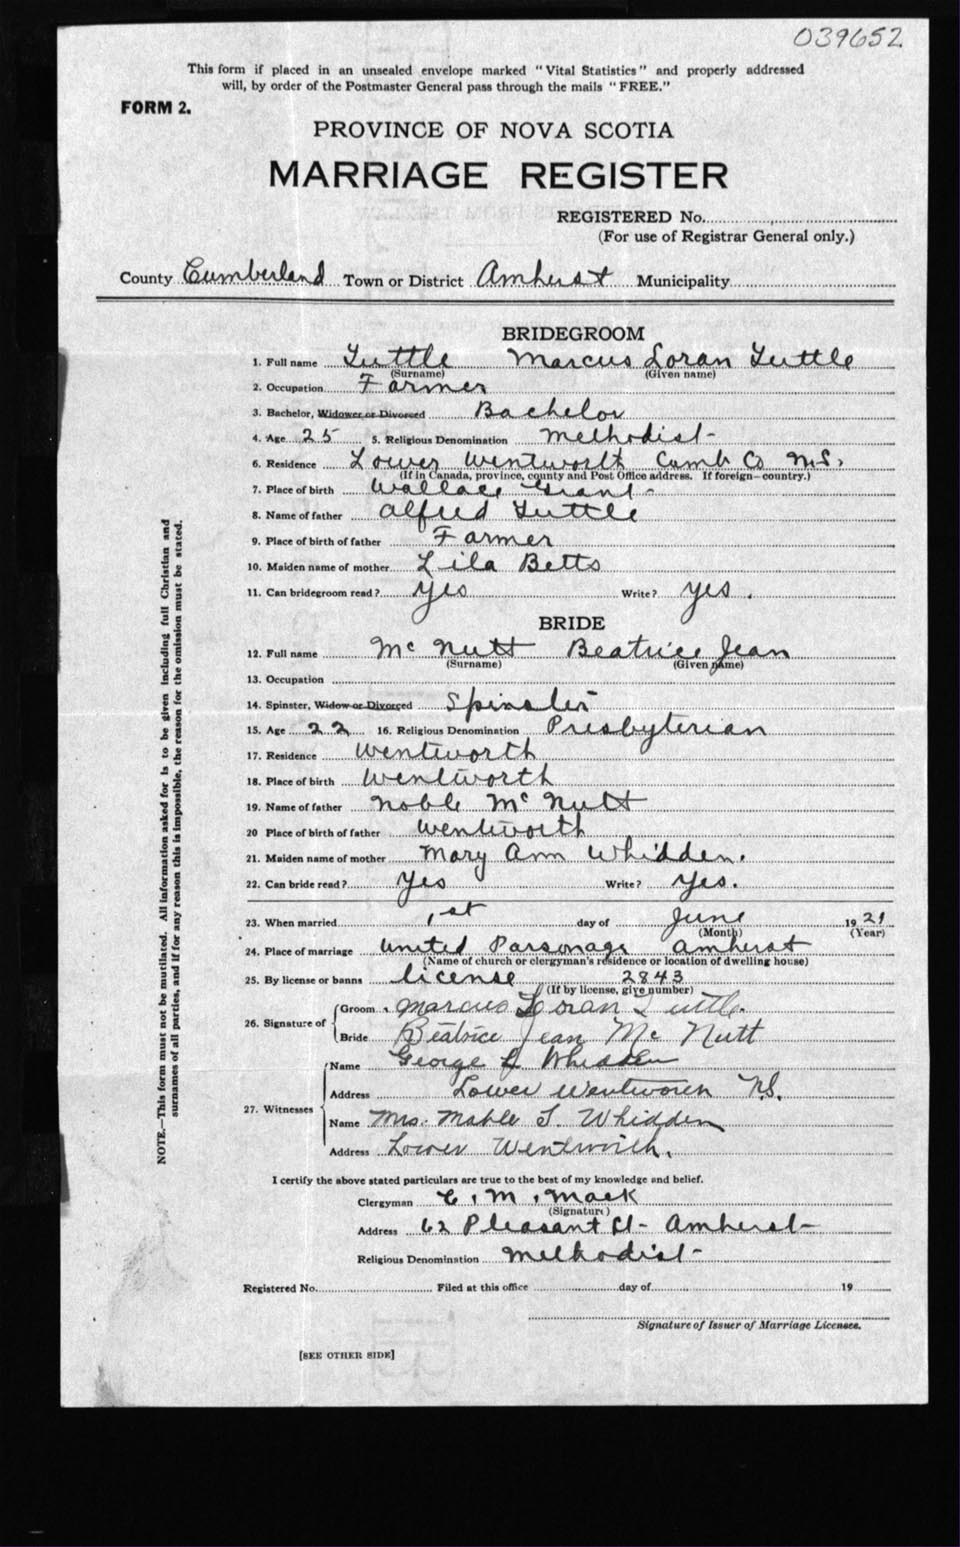 039652
This form if placed in an unsealed envelope marked "Vital Statistics" and properly addressed
will, by order of the Postmaster General pass through the mails "FREE."
FORM 2.
PROVINCE OF NOVA SCOTIA
MARRIAGE REGISTER
REGISTERED No.
(For use of Registrar General only.)
County Cumberland Town or District Amherst Municipality
BRIDEGROOM
1. Full name Tuttle Marcus Loran Tuttle
(Surname) (Given name)
2. Occupation Farmer
3. Bachelor, Widower or Divorced Bachelor
4. Age 25 5. Religious Denomination Methodist
6. Residence Lower Wentworth Cumb Co N.S.
(If in Canada, province, county and Post Office address. If foreign—country.)
7. Place of birth Wallace Grant
8. Name of father Alfred Tuttle
9. Place of birth of father Farmer
10. Maiden name of mother Lila Betts
11. Can bridegroom read? Yes Write? Yes.
BRIDE
12. Full name McNutt Beatrice Jean
(Surname) (Given name)
13. Occupation
14. Spinster, Widow or Divorced Spinster
15. Age 22 16. Religious Denomination Presbyterian
17. Residence Wentworth
18. Place of birth Wentworth
19. Name of father Noble McNutt
20 Place of birth of father Wentworth
21. Maiden name of mother Mary Ann Whidden.
22. Can bride read? Yes Write? Yes.
23. When married 1st day of June 1921
(Month) (Year)
24. Place of marriage United Parsonage Amherst
(Name of church or clergyman's residence or location of dwelling house)
25. By license or banns license 2843
(If by license, give number)
26. Signature of
Groom Marcus Loran Tuttle.
Bride Beatrice Jean McNutt
27. Witnesses
Name George L Whidden
Address Lower Wentworth N.S.
Name Mrs. Mable T. Whidden
Address Lower Wentworth.
I certify the above stated particulars are true to the best of my knowledge and belief.
Clergyman C. M. Mack
(Signature)
Address 62 Pleasant St- Amherst
Religious Denomination Methodist
Registered No. Filed at this office day of 19
Signature of Issuer of Marriage Licenses.
[SEE OTHER SIDE]
NOTE.—This form must not be mutilated. All information asked for is to be given including full Christian and
surnames of all parties, and if for any reason this is impossible, the reason for the omission must be stated.